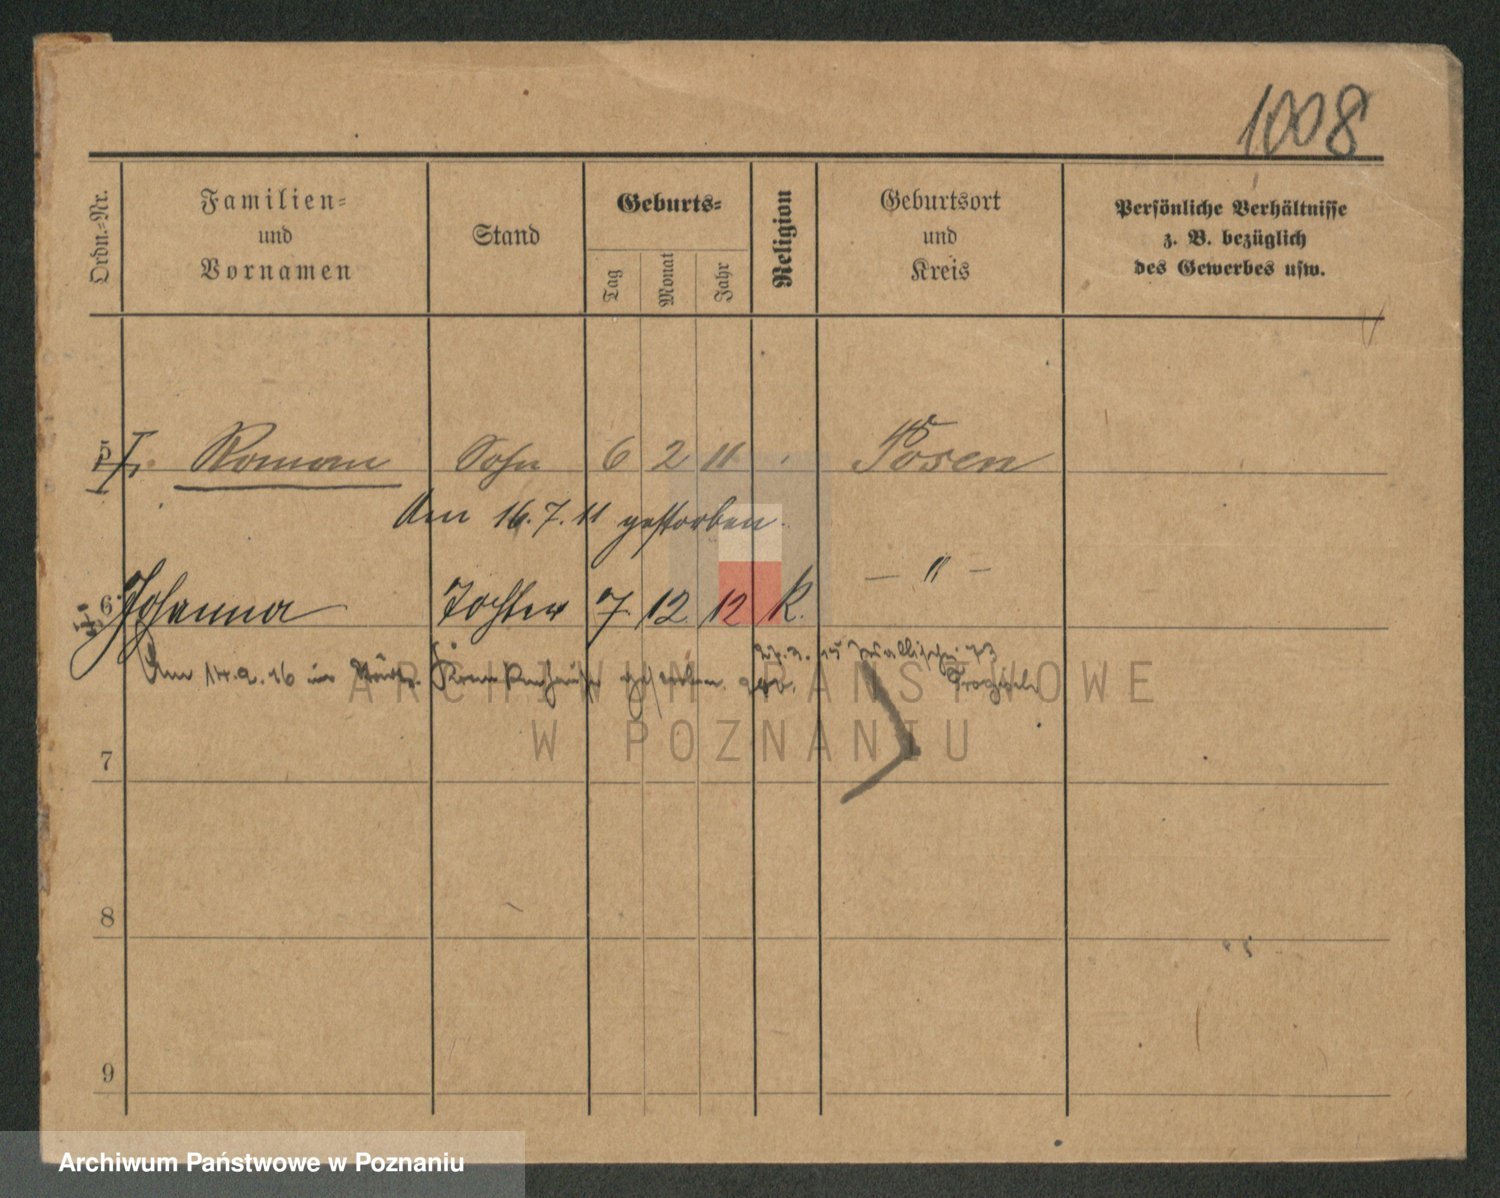 1008
Ordn.-Nr.
Familien-
und
Vornamen
Stand
Geburts-
Tag
Monat
Jahr
Religion
Geburtsort
und
Kreis
Persönliche Verhältnisse
z. B. bezüglich
des Gewerbes usw.
5 Roman Sohn 6 2 11 Posen
Am 16.7.11 gestorben.
6 Johanna Tochter 7. 12. 12 k. — " —
Am 14.2.16 im Städt. Krankenhause gestorben
ARCHIWUM PAŃSTWOWE
W POZNANIU
7
8
9
Archiwum Państwowe w Poznaniu